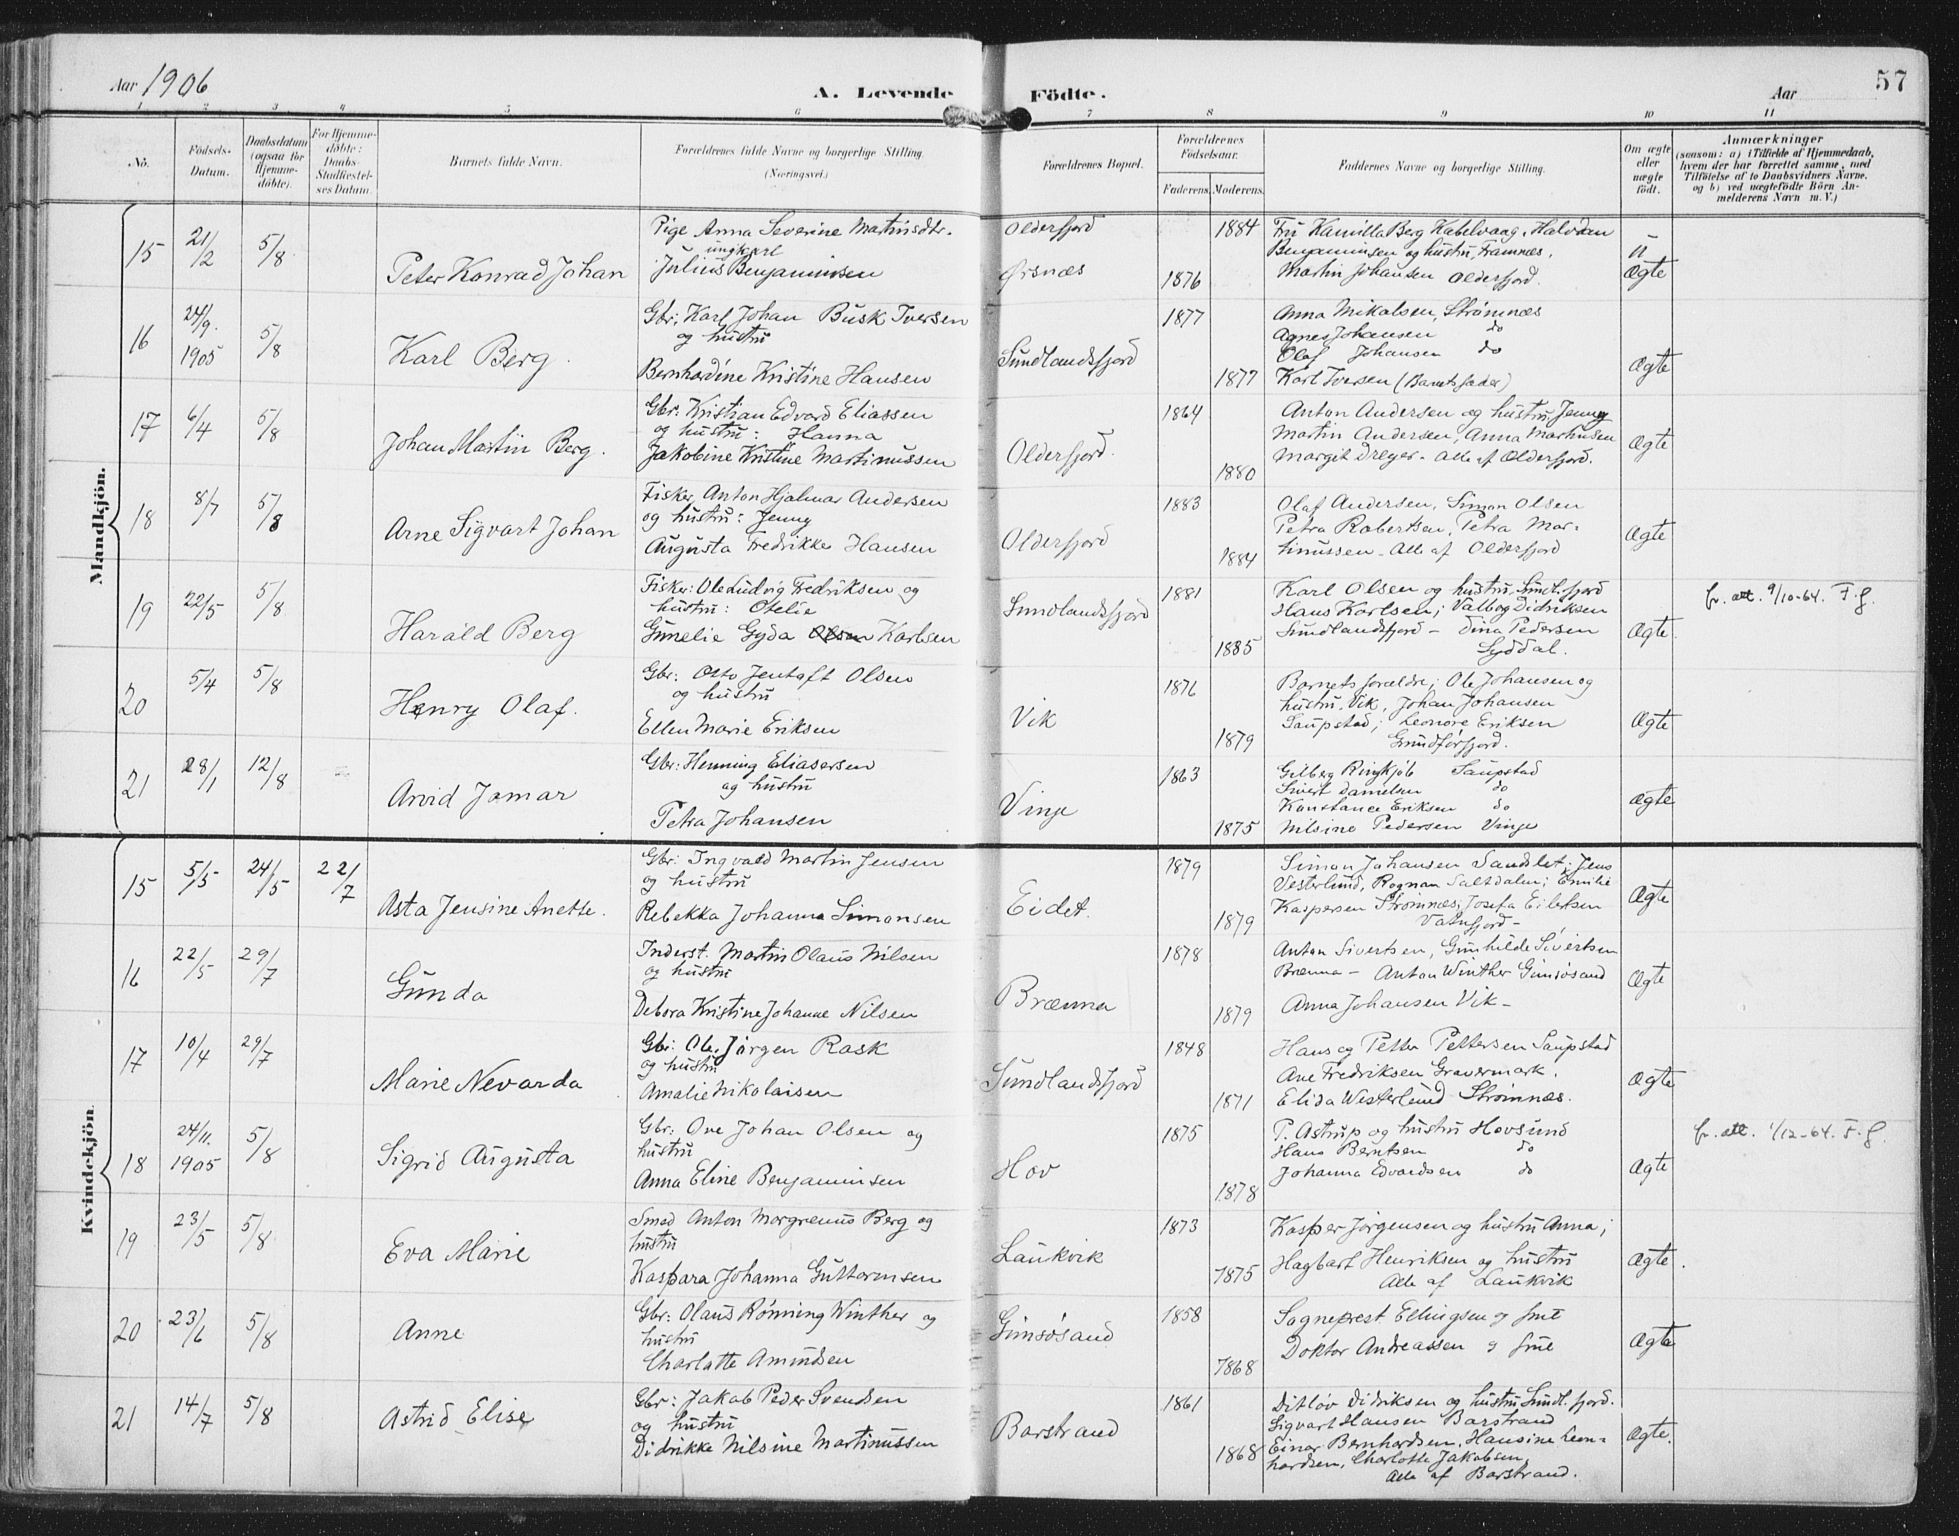 Aar 1906
A. Levende Födte.
Aar
57
1 2 3 4 5 6 7 8 9 10 11
No.
Födsels-Datum.
Daabsdatum (ogsaa for Hjemme-döbte).
For Hjemme-döbte: Daabs-Stadfæstel-ses Datum.
Barnets fulde Navn.
Forældrenes fulde Navne og borgerlige Stilling.
(Næringsvei.)
Forældrenes Bopæl.
Forældrenes Födselsaar.
Faderens. Moderens.
Faddernes Navne og borgerlige Stilling.
Om ægte eller uægte födt.
Anmærkninger
(saasom: a) i Tilfælde af Hjemmedaab, hvem der har forrettet samme, med Tilföielse af to Daabsvidners Navne. og b) ved uægtefödte Börn An-melderens Navn m. V.)
Mandkjön.
15 21/2 5/8 Peter Konrad Johan
Pige Anna Severine Martinsdtr.
ungkarl
Julius Benjaminsen
Oldersfjord
Ørsnæs
1884
1876
Fru Kamilla Berg Kabelvaag, Halvdan
Benjaminsen og hustru, Framnæs.
Martin Johansen Oldersfjord.
U
Ægte
16 24/9. 1905 5/8 Karl Berg.
Gbr; Karl Johan Busk Iversen
og hustru
Bernhardine Kristine Hansen
Sundlandsfjord
1877
1877
Anna Mikalsen, Strømnæs
Agnes Johansen do
Olaf Johansen do
Karl Iversen (Barnets fader)
Ægte
17 6/4 5/8 Johan Martin Berg.
Gbr: Kristian Edvard Eliassen
og hustru: Hanna
Jakobine Kristine Martinussen
Oldersfjord.
1864
1880
Anton Andersen og hustru Jenny
Martin Andersen, Anna Martinsen
Margit Dreyer - Alle af Oldersfjord.
Ægte
18 8/7 5/8 Arne Sigvart Johan
Fisker, Anton Hjalmar Andersen
og hustru: Jenny
Augusta Fredrikke Hansen
Oldersfjord
1883
1884
Olaf Andersen, Simon Olsen
Petra Robertsen, Petra Mar-
tinussen - Alle af Oldersfjord
Ægte
19 22/5 5/8 Harald Berg
Fisker: Ole Ludvig Fredriksen og
hustru: Otelie
Gunelie Gyda Olsen Karlsen
Sundlandsfjord
1881
1885
Karl Olsen og hustru Sundl.fjord
Hans Karlsen; Valbog Didriksen
Sundlandsfjord - Dina Pedersen
Syddal.
Ægte
fr. att. 9/10-64. F.g.
20 5/4 5/8 Henry Olaf.
Gbr: Otto Jentoft Olsen
og hustru
Ellen Marie Eriksen
Vik
1876
1879
Barnets forældre; Ole Johansen og
hustru, Vik, Johan Johansen
Saupstad; Leonore Eriksen
Grundførfjord.
Ægte
21 28/1 12/8 Arvid Jomar
Gbr: Henning Eliasersen
og hustru
Petra Johansen
Vinje
1863
1875
Gilberg Ringkjøb Saupstad
Sivert Danielsen do
Konstance Eriksen do
Nilsine Pedersen Vinje
Ægte
Kvindekjön.
15 5/5 24/5 22/7 Asta Jensine Anette.
Gbr: Ingvald Martin Jensen
og hustru
Rebekka Johanna Simonsen
Eidet.
1879
1879
Simon Johansen Sandslet; Jens
Vesterlund, Rognan Saltdalen; Emilie
Kaspersen Strømnæs; Josefa Eilertsen
Vatnfjord -
Ægte
16 22/5 29/7 Gunda
Inderst. Martin Olaus Nilsen
og hustru
Debora Kristine Johanne Nilsen
Brænna
1878
1879
Anton Sivertsen, Gunhilde Sivertsen
Brænna - Anton Winther Gimsøsand
Anna Johansen Vik -
Ægte
17 10/4 29/7 Marie Nevarda
Gbr: Ole Jørgen Rask
og hustru
Amalie Nikolaisen
Sundlandsfjord
1848
1871
Hans og Petter Pettersen Saupstad
Ane Fredriksen Gravermark.
Elida Westerlund Strømnæs.
Ægte
18 24/11. 1905 5/8 Sigrid Augusta
Gbr: Ove Johan Olsen og
hustru
Anna Eline Benjaminsen
Hov
1875
1878
P. Astrup og hustru Hovsund
Hans Berntsen do
Johanna Edvardsen do
Ægte
fr. att. 1/12-64. F.g.
19 23/5 5/8 Eva Marie
Smed Anton Margrenus Berg og
hustru
Kaspara Johanna Guttormsen
Laukvik
1873
1875
Kasper Jørgensen og hustru Anna;
Hagbart Henriksen og hustru
Alle af Laukvik
Ægte.
20 23/6 5/8 Anne
Gbr: Olaus Rønning Winther og
hustru
Charlotte Amundsen
Gimsøsand
1858
1868
Sogneprest Ellingsen og frue
Doktor Andreassen og frue
Ægte
21 14/7 5/8 Astrid Elise
Gbr: Jakob Peder Svendsen
og hustru
Didrikke Nilsine Martinussen
Barstrand
1861
1868
Ditløv Didriksen og hustru Sundl.fjord.
Sigvart Hansen Barstrand
Einar Bernhardsen, Hansine Leon-
hardsen, Charlotte Jakobsen,
Alle af Barstrand.
Ægte.